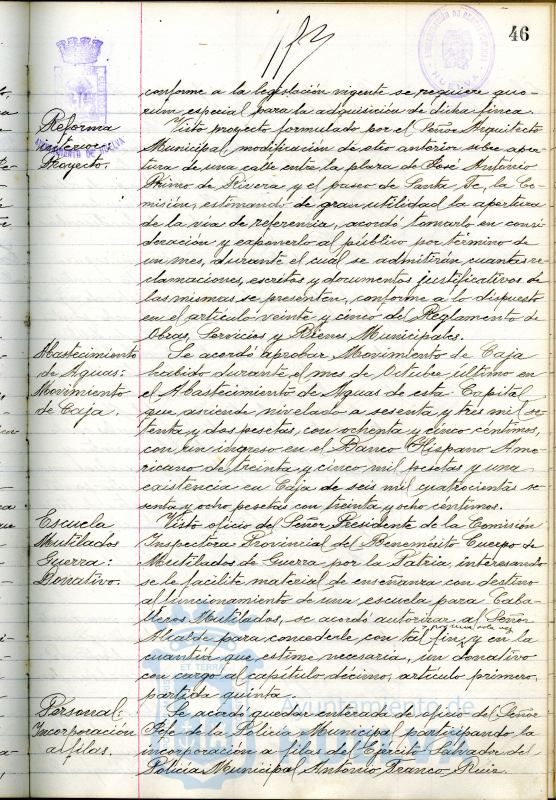 46
conforme a la legislación vigente se requiere quo-
rum especial para la adquisición de dicha finca.
Reforma
interior:
Proyecto.
AYUNTAMIENTO DE HUELVA
Visto proyecto formulado por el Señor Arquitecto
Municipal modificación de otro anterior sobre aper-
tura de una calle entre la plaza de José Antonio
Primo de Rivera y el paseo de Santa Fe, la Co-
misión, estimando de gran utilidad la apertura
de la vía de referencia, acordó tomarlo en consi-
deración y exponerlo al público por término de
un mes, durante el cual se admitirán cuantas re-
clamaciones, escritos y documentos justificativos de
las mismas se presenten, conforme a lo dispuesto
en el artículo veinte y cinco del Reglamento de
Obras, Servicios y Bienes Municipales.
Abastecimiento
de Aguas:
Movimiento
de Caja.
Se acordó aprobar Movimiento de Caja
habido durante el mes de Octubre último en
el Abastecimiento de Aguas de esta Capital
que asciende nivelado a sesenta y tres mil se-
tenta y dos pesetas, con ochenta y cinco céntimos,
con un ingreso en el Banco Hispano Ame-
ricano de treinta y cinco mil pesetas y una
existencia en Caja de seis mil cuatrocientas se-
senta y ocho pesetas con treinta y ocho céntimos.
Escuela
Mutilados
Guerra:
Donativo.
Visto oficio del Señor Presidente de la Comisión
Inspectora Provincial del Benemérito Cuerpo de
Mutilados de Guerra por la Patria interesando
se le facilite material de enseñanza con destino
al funcionamiento de una escuela para Caba-
lleros Mutilados, se acordó autorizar al Señor
y por una sola vez
Alcalde para concederle con tal fin, y en la
cuantía que estime necesaria, un donativo
con cargo al capítulo décimo, artículo primero,
partida quinta.
Personal:
Incorporación
a filas.
Se acordó quedar enterada de oficio del Señor
Jefe de la Policía Municipal participando la
incorporación a filas del Ejército Salvador del
Policía Municipal Antonio Franco Ruiz.
ET TERRA
Ayuntamiento de